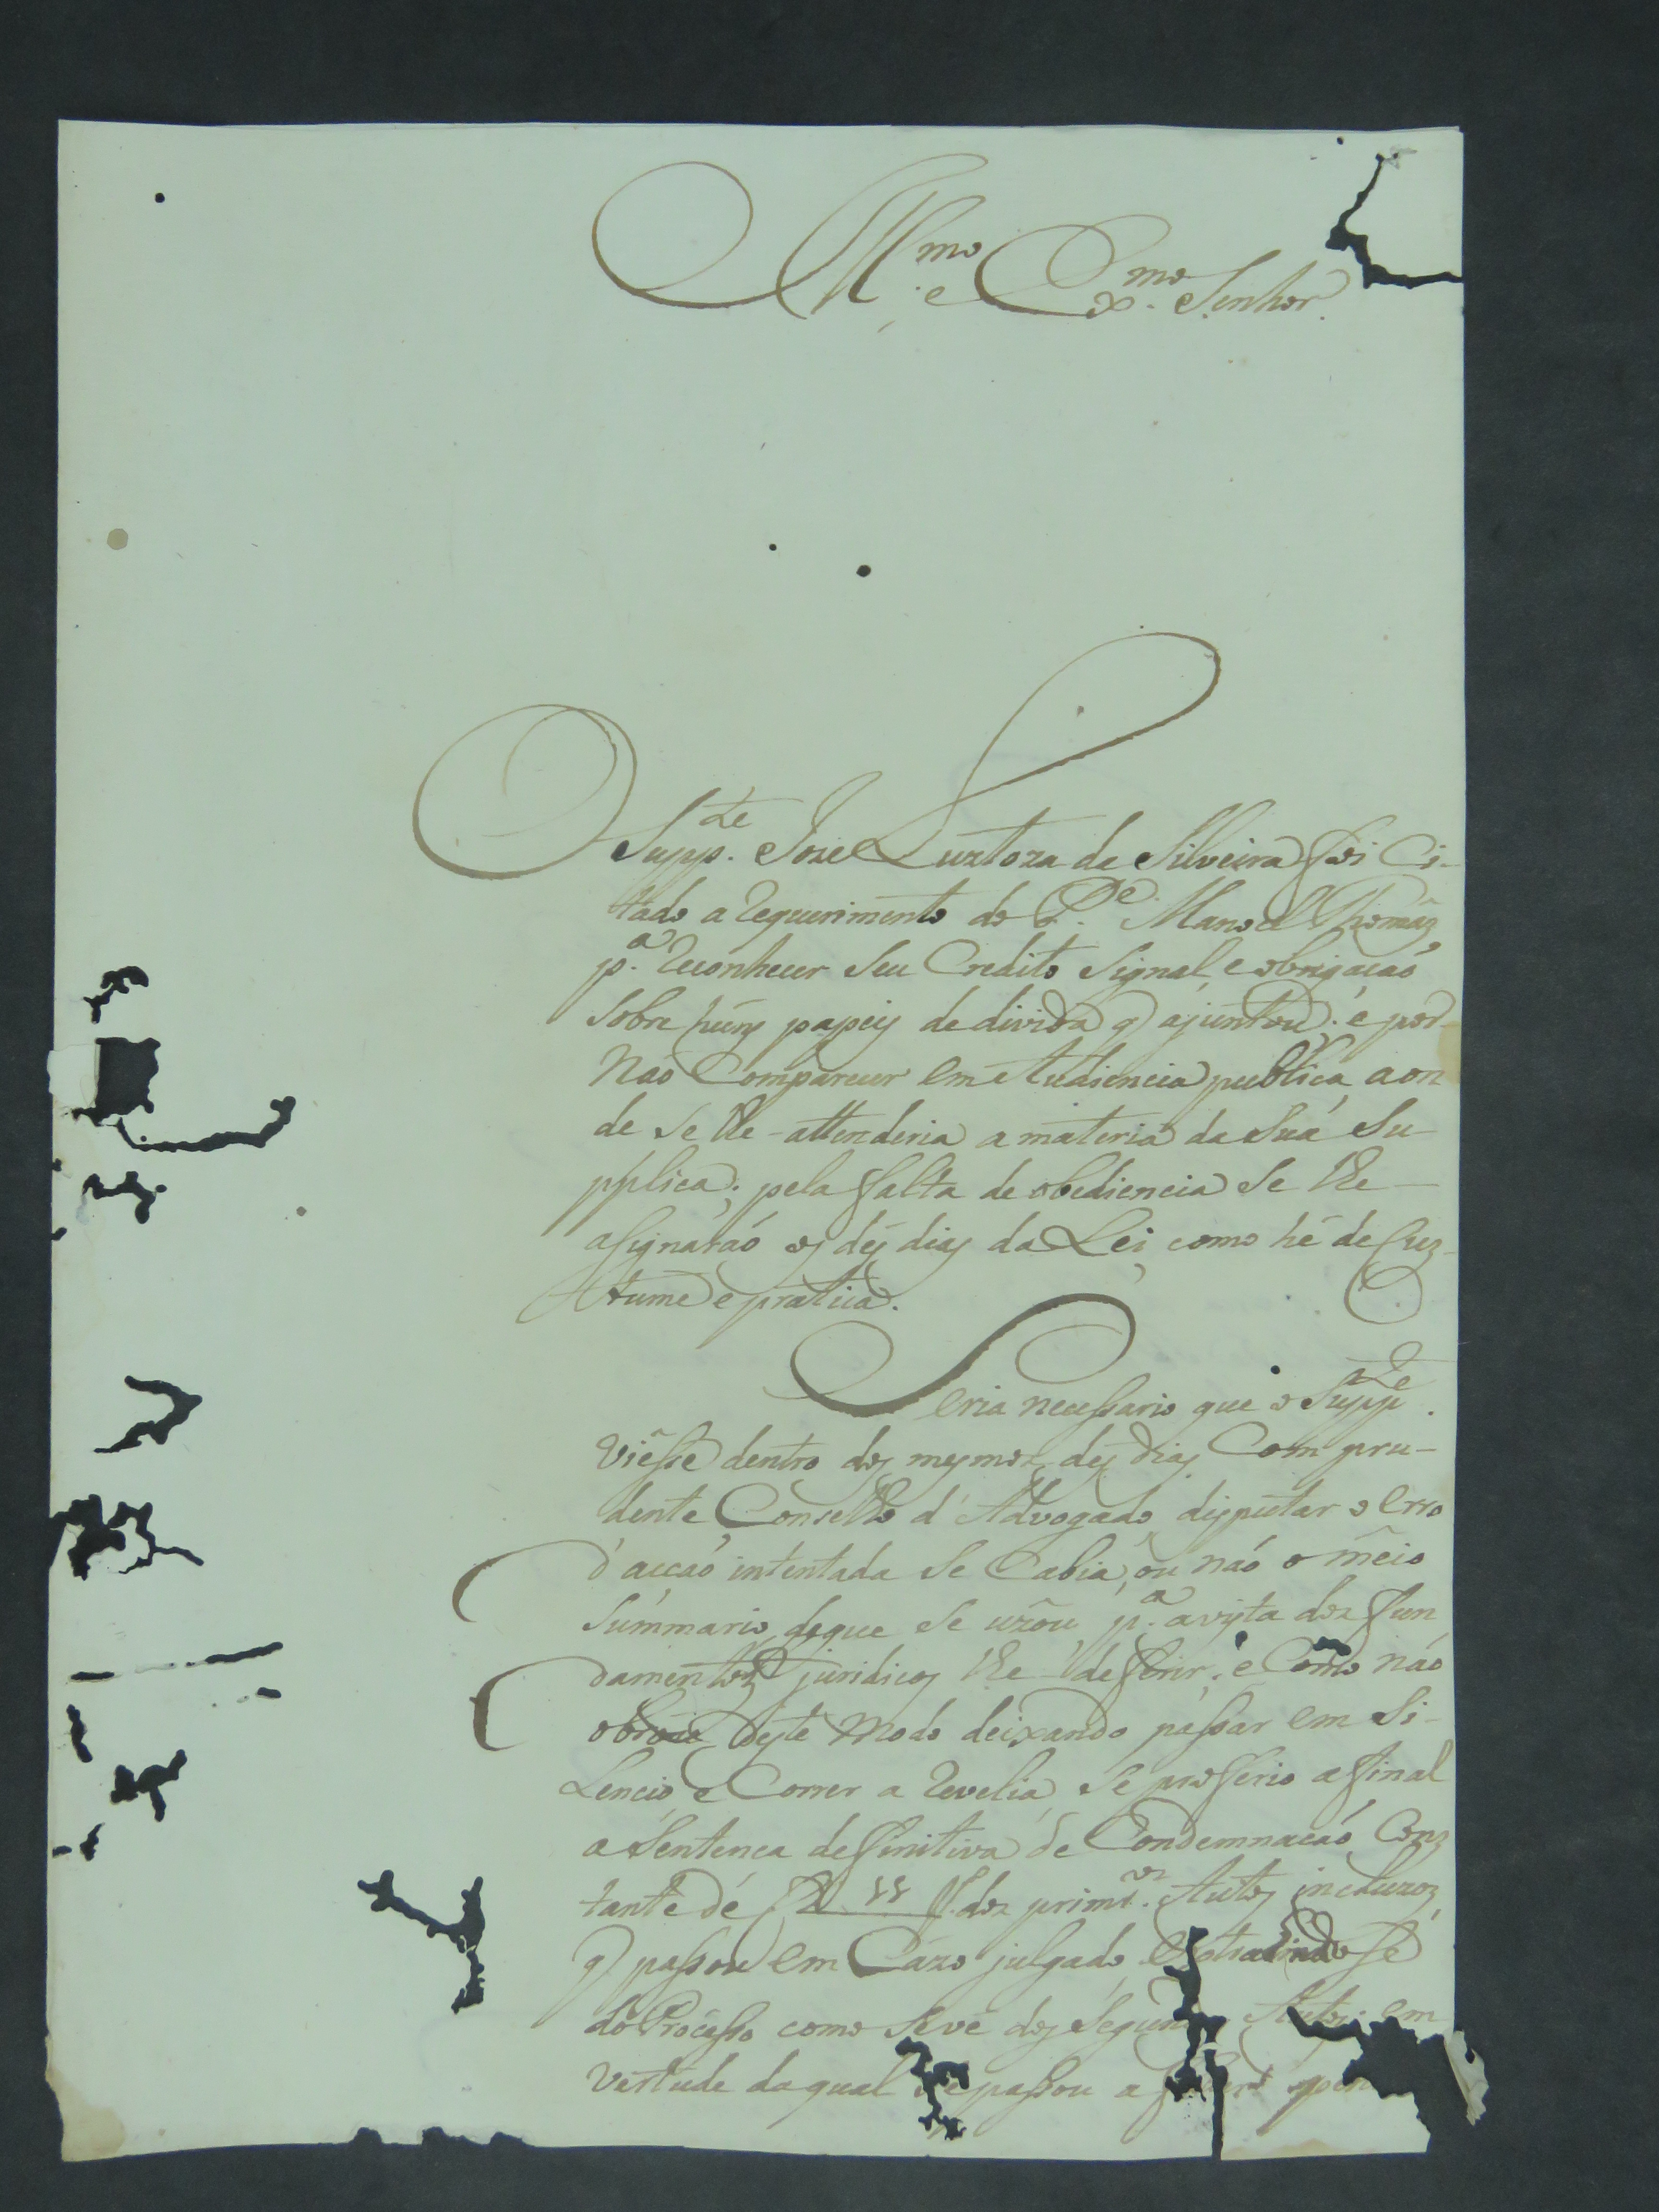 Illmo. e Exmo. Senhor.
O Suppte. Joze Luztoza da Silveira foi Ci-
tado a requerimento do Pe. Manoel Thomâz
pa. reconhecer Seu Credito Signal, e obrigaçaó
Sobre hûns papeis de divida q ajuntou; e por
Naó Comparecer em Audiencia publica, aon
de Se lhe-attenderia a materia da Suá Su-
pplica; pela falta de obediencia Se lhe-
asignaraó os dés dias da Lei, como hé de Cuz-
tume e pratica.
Seria necessario que o Suppte.
viésse dentro dos mesmoz dés dias Com pru-
dente Conselho d'Advogado, disputar o Erro
d'acçaó intentada Se Cabia, ou naó o mêio
Summario, deque Se uzou pa. avista doz fun
damentoz juridicos lhe deferir; e Como naó
obrou deste Modo deixando passar em Si-
Lencio e Correr a revelia, Se proferio afinal
a Sentença definitiva de Condemnaçaó Conz
tante dé f doz primros. Autos incluzoz,
q passou em Cazo julgado, Extrahindo Se
do Procésso como Sevé dos Segun Autos em
Vertude da qual Se passou a